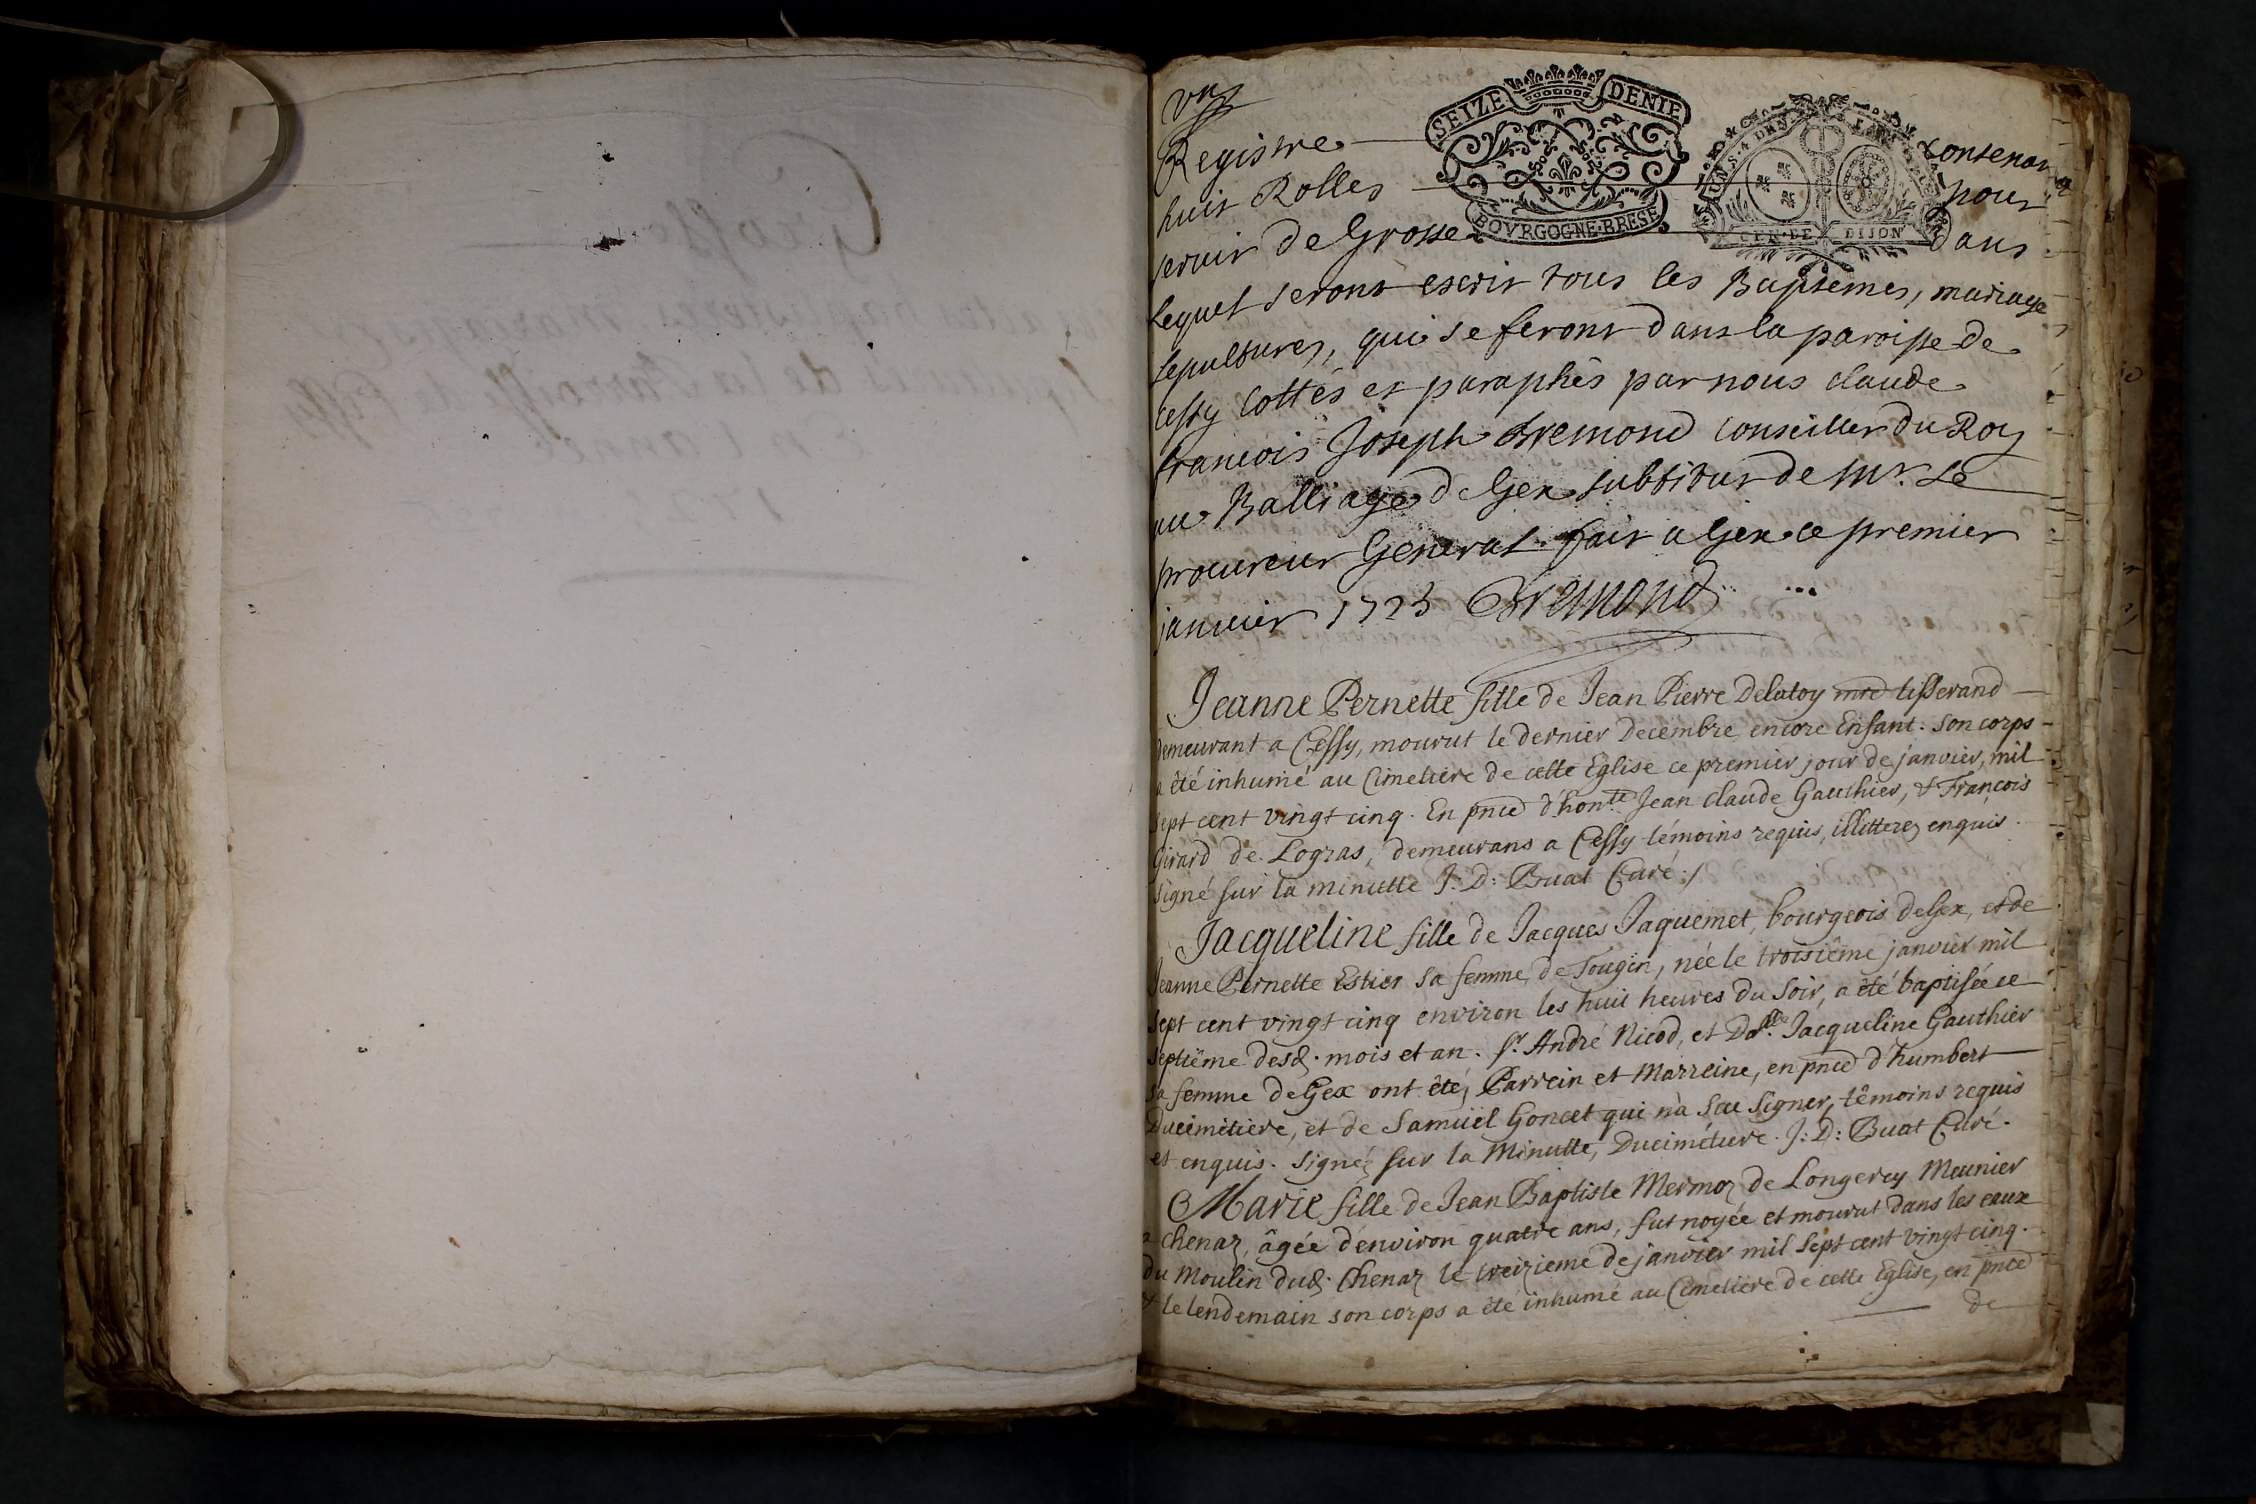 un
Registre contenant
huit Rolles pour
servir de Grosse dans
SEIZE DENIE
BOVRGOGNE·BRESE
GEN·DE DIJON
lequel seront escrit tous les Baptemes, mariage
sepultures, qui se feront dans la paroisse de
Cessy Cottés et paraphés par nous claude
francois Joseph Bremond Conseiller du Roy
au Balliage de Gex substitut de Mr. Le
procureur General. fait a Gex ce premier
januier 1725 Bremond
Jeanne Pernette fille de Jean Pierre Delatoy mrd tisserand
demeurant a Cessy, mourut le dernier Decembre encore Enfant. Son corps
a été inhumé au Cimetiere de cette Eglise ce premier jour de janvier, mil
sept cent vingt cinq. En pnce d'honte Jean Claude Gauthier, & François
Girard de Logras, demeurans a Cessy témoins requis, illitterez enquis.
signé sur la minutte J: D: Buat Curé:/
Jacqueline fille de Jacques Jaquemet, bourgeois de Gex, et de
Jeanne Pernette Estier sa femme, de Tougin, née le troisiême janvier mil
sept cent vingt cinq environ les huit heures du Soir, a été baptisée ce
septiême desd. mois et an. Sr. André Nicod, et Dlle. Jacqueline Gauthier
sa femme de Gex ont été, Parrein et Marreine, en pnce d'humbert
Ducimétiere, et de Samuël Goncet qui n'a Scu Signer, témoins requis
et enquis. Signéz sur la Minutte, Ducimétiere. J: D: Buat Curé.
Marie fille de Jean Baptiste Mermoz de Longerey Meunier
a Chenaz, âgée d'environ quatre ans, fut noyée et mourut dans les eaux
du Moulin dud. Chenaz le treizieme de janvier mil Sept cent vingt cinq.
& le lendemain son corps a été inhumé au Cimetiere de cette Eglise, en pnce
de